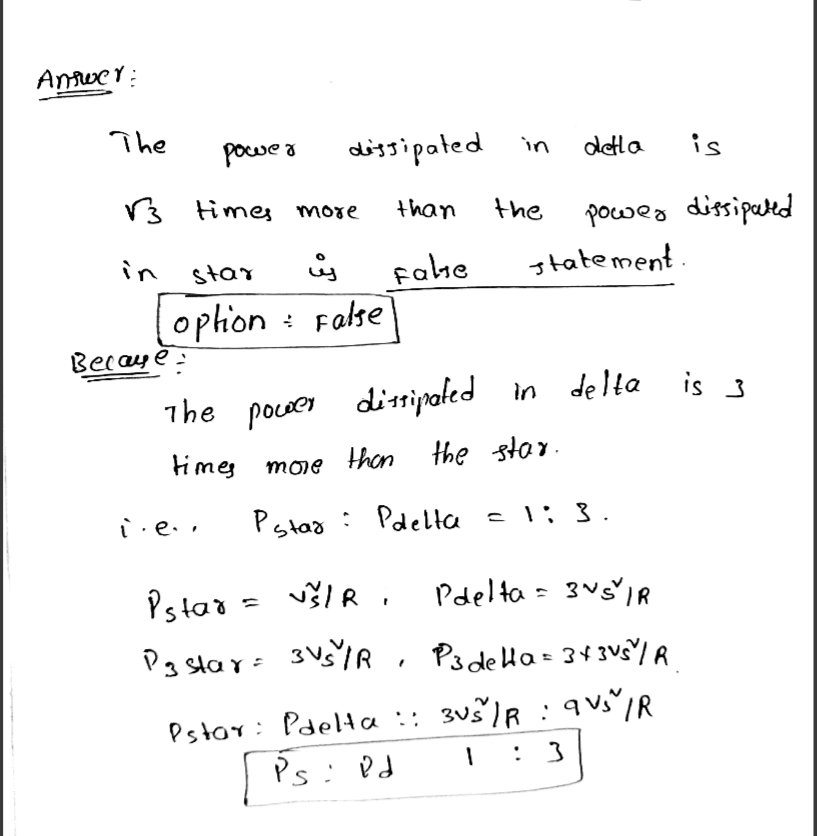 Answer:
The power dissipated in detla is
√3 times more than the power dissipated
in star is false statement.
option : False
Because:
The power dissipated in delta is 3
times more than the star.
i.e., Pstar : Pdelta = 1 : 3.
Pstar = Vs²/R , Pdelta = 3Vs²/R
P3 star = 3Vs²/R , P3 delta = 3×3Vs²/R
Pstar : Pdelta :: 3Vs²/R : 9Vs²/R
Ps : Pd 1 : 3